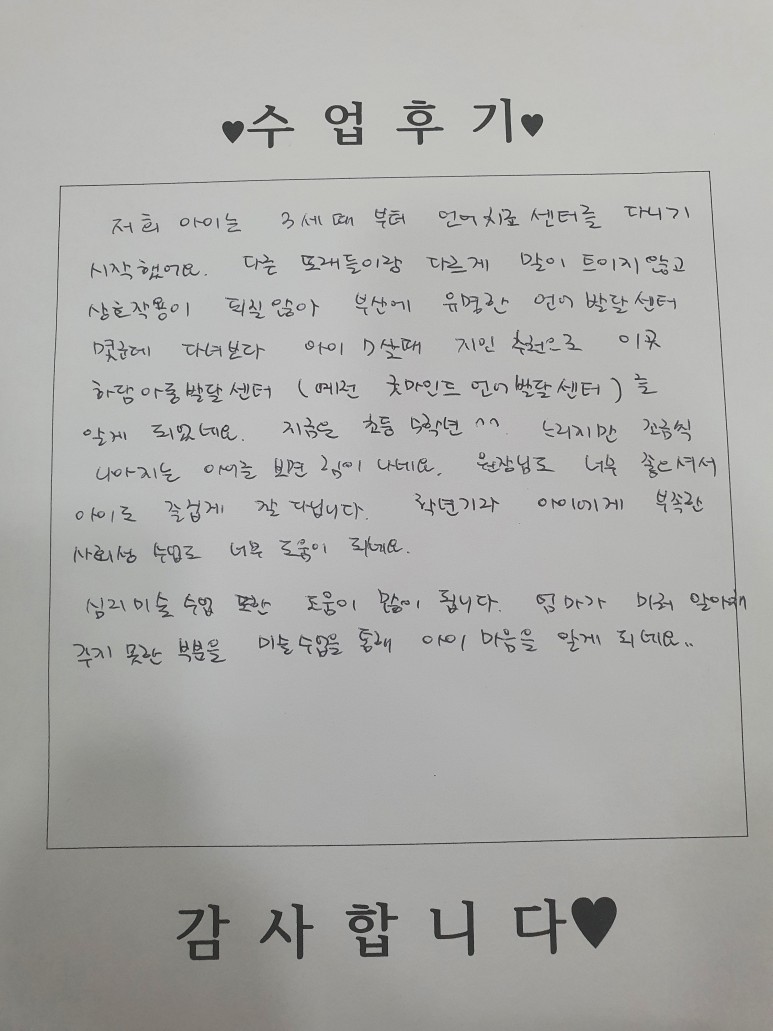 ♥수 업 후 기♥
저희 아이는 3세때 부터 언어치료센터를 다니기
시작했어요. 다른 또래들이랑 다르게 말이 트이지않고
상호작용이 되질않아 부산에 유명한 언어발달센터
몇군데 다녀보다 아이 7살때 지인 추천으로 이곳
하담아동발달센터 (예전 굿마인드 언어발달센터)를
알게 되었네요. 지금은 초등 5학년^^. 느리지만 조금씩
나아지는 아이를 보면 힘이 나네요. 원장님도 너무 좋으셔서
아이도 즐겁게 잘 다닙니다. 학년기라 아이에게 부족한
사회성 수업도 너무 도움이 되네요.
심리미술 수업 또한 도움이 많이 됩니다. 엄마가 미처 알아채
주지 못한 부분을 미술수업을 통해 아이 마음을 알게 되네요..
감 사 합 니 다♥